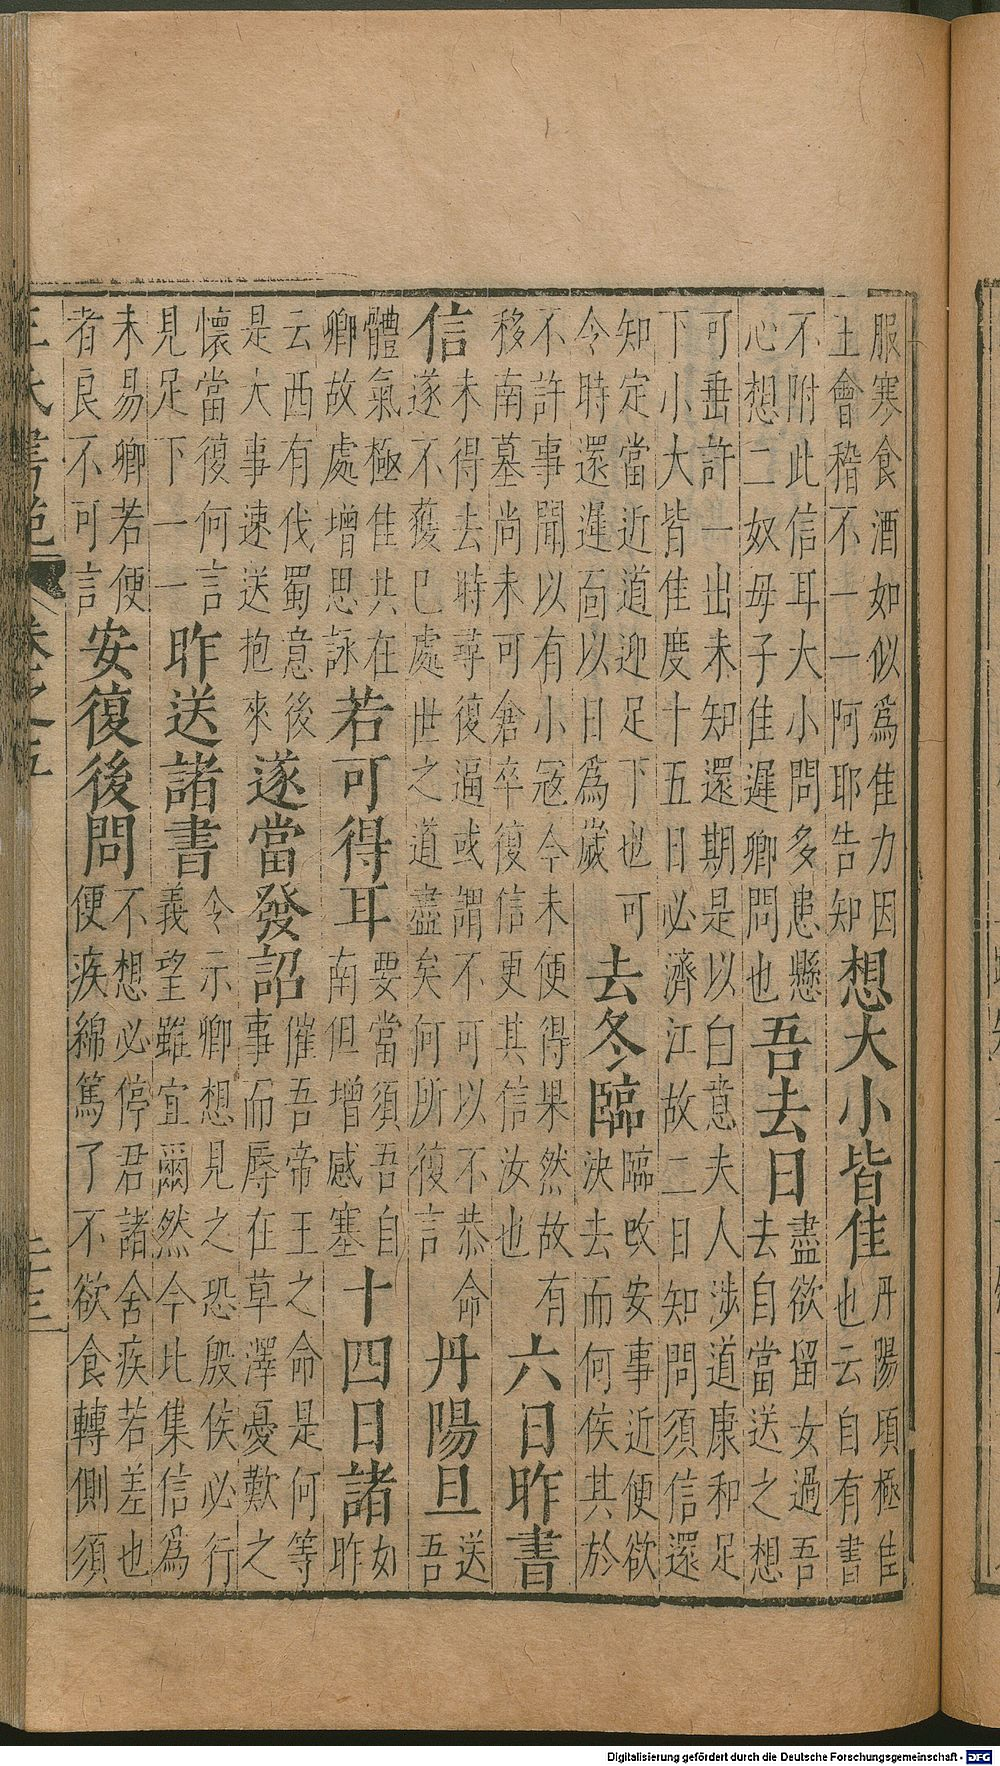 服寒食酒如似為佳力因
上會稽不一一阿耶告知
想大小皆佳
丹陽頃極佳
也云自有書
不附此信耳大小問多患懸
心想二奴母子佳遲卿問也
吾去日
盡欲留女過吾
去自當送之想
可垂許一出未知還期是以白意夫人涉道康和足
下小大皆佳度十五日必濟江故二日知問須信還
知定當近道迎足下也可
令時還遲面以日為歲
去冬臨
臨政安事近便欲
決去而何侯其於
不許事聞以有小冦今未便得果然故有
移南墓尚未可倉卒復信更其信汝也
六日昨書
信
未得去時尋復逼或謂不可以不恭命
遂不獲已處世之道盡矣何所復言
丹陽旦
送
吾
體氣極佳共在
卿故處增思詠
若可得耳
要當須吾自
南但增感塞
十四日諸
如
昨
云西有伐蜀意後
是大事速送抱來
遂當發詔
催吾帝王之命是何等
事而辱在草澤憂歎之
懷當復何言
見足下一一
昨送諸書
令示卿想見之恐殷侯必行
義望雖宜爾然今比集信為
未易卿若便
者良不可言
安復後問
不想必停君諸舍疾若差也
便疾綿篤了不欲食轉側須
王氏書苑 卷之五
Digitalisierung gefördert durch die Deutsche Forschungsgemeinschaft - DFG